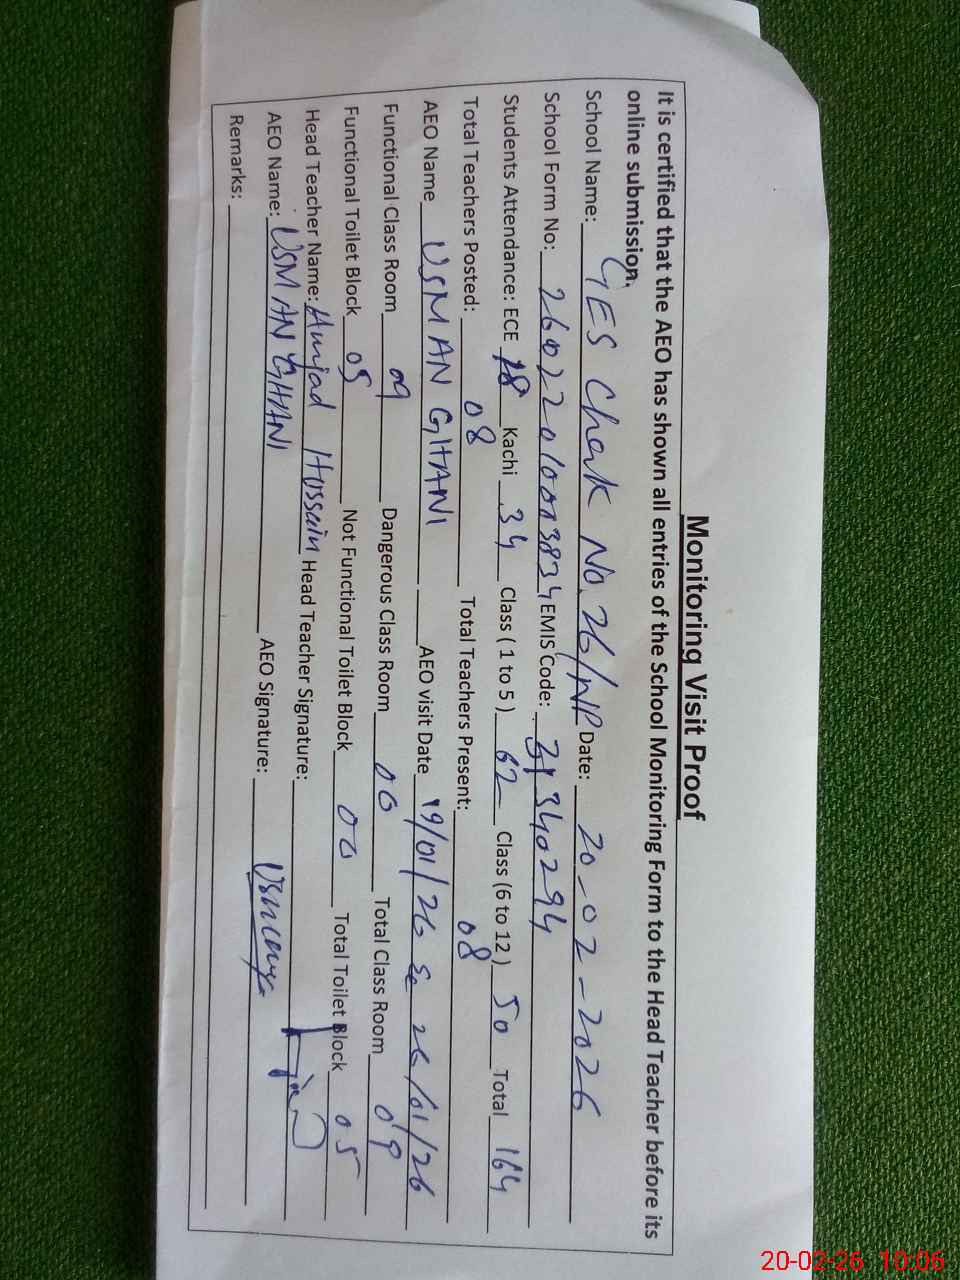 Monitoring Visit Proof
It is certified that the AEO has shown all entries of the School Monitoring Form to the Head Teacher before its
online submission.
School Name: GES Chak No. 26/NP Date: 20-02-2026
School Form No: 26022010003834 EMIS Code: 31340294
Students Attendance: ECE 18 Kachi 34 Class ( 1 to 5 ) 62 Class (6 to 12 ) 50 Total 164
Total Teachers Posted: 08 Total Teachers Present: 08
AEO Name USMAN GHANI AEO visit Date 19/01/26 & 26/01/26
Functional Class Room 09 Dangerous Class Room 00 Total Class Room 09
Functional Toilet Block 05 Not Functional Toilet Block 00 Total Toilet Block 05
Head Teacher Name: Amjad Hussain Head Teacher Signature:
AEO Name: USMAN GHANI AEO Signature: Usman
Remarks:
20-02-26 10:06